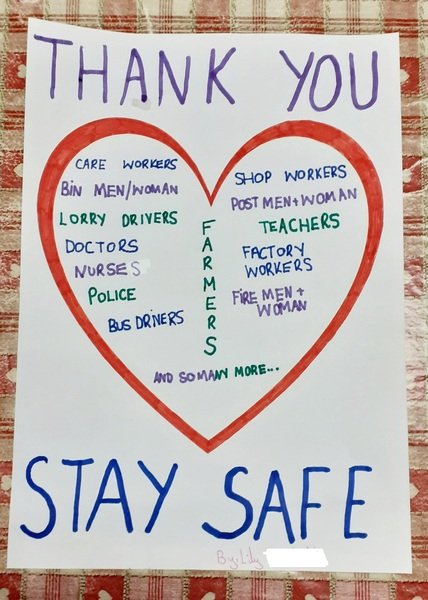 THANK YOU
CARE WORKERS
BIN MEN/WOMAN
LORRY DRIVERS
DOCTORS
NURSES
POLICE
BUS DRIVERS
FARMERS
SHOP WORKERS
POST MEN + WOMAN
TEACHERS
FACTORY
WORKERS
FIRE MEN +
WOMAN
AND SO MANY MORE...
STAY SAFE
By: Lily